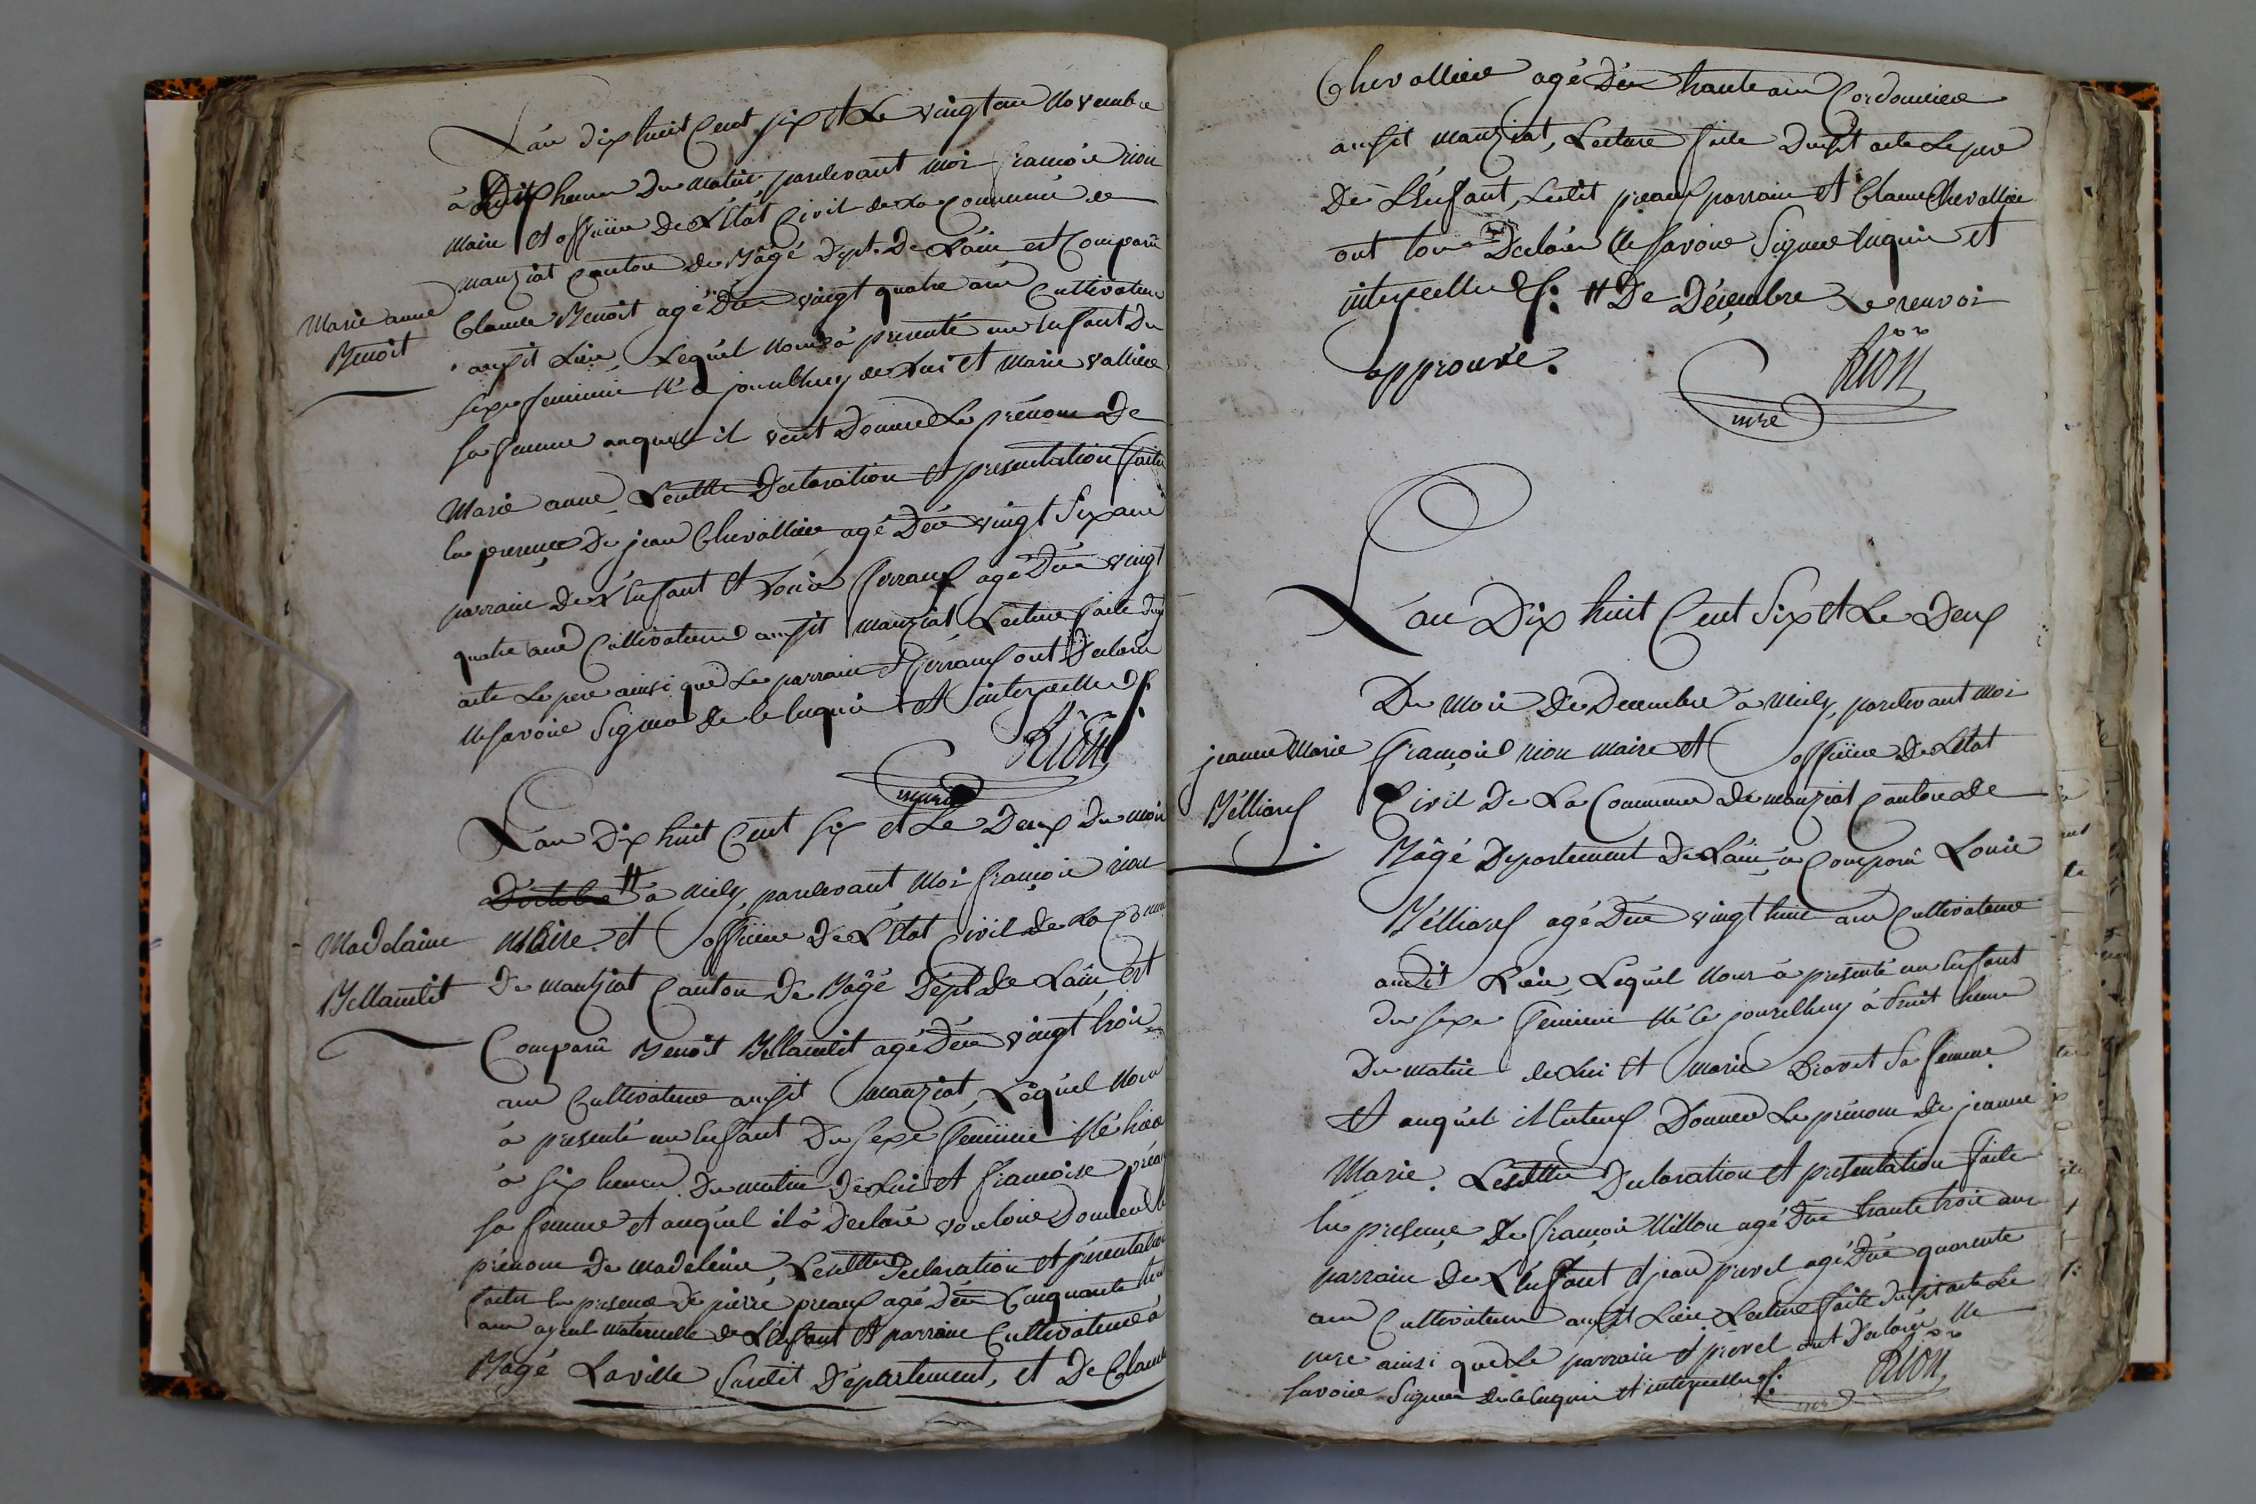 L'an dix huit Cent six et Le vingt un novembre
à dix heures du matin, pardevant moi françois rion
maire et officier de L'Etat Civil de La Commune de
manziat Canton de Bâgé Dépt. De L'ain est Comparû
Claude Benoit agé D'un vingt quatre ans Cultivateur
audit Lieu, Lequel nous à presenté un Enfant Du
sexe feminin né à jourdhuy de Lui et Marie vallier
Marie anne
Benoit
sa femme auquel il veut Donner Le prénom De
Marie anne, Lesdittes Déclaration et présentation faites
En presence De jean Chevallier agé D'un vingt six ans
parrain De L'Enfant et Louis ferrand agé D'un vingt
quatre ans Cultivateurs audit Manziat Lecture faite dudit
acte Le pere ainsi que Le parrain et ferrand ont Déclaré
ne savoir signer de ce Enquis et interpellés d/.
Rion
mre
L'an Dix huit Cent six et Le Deux Du mois
D'octobre # à midy, pardevant moi françois rion
Maire et officier De L'Etat Civil de La Comme
De manziat Canton De Bâgé Dépt. de L'ain Est
Madelaine
Bellaudit
Comparû Benoit Bellaudit agé D'un vingt trois
ans Cultivateur audit Manziat, Lequel Nous
à presenté un Enfant Du sexe feminin Né hier
à six heures Du matin De Lui et françoise préau
sa femme et auquel il à Déclaré vouloir Donner Le
prénom De Madeleine, Lesdittes Declaration et présentation
faites En presence De pierre preaux agé D'un Cinquante
ans ayeul maternelle de L'Enfant et parrain Cultivateur à
Bagé Laville susdit Département, et De Claude
Chevallier agé D'un trente ans Cordonnier
audit manziat, Lecture faite Dudit acte Le pere
De L'Enfant, Ledit preaux parrain et Claude Chevallier
ont tous Déclarés Ne savoir Signer Enquis et
interpellés d/. # De Décembre Le renvoi
approuvé.
Rion
mre
L'an Dix huit Cent Six et Le Deux
Du mois De Decembre à Midy, pardevant Moi
jeanne Marie
Bélliard
françois rion maire et officier De L'Etat
Civil De La Commune de manziat Canton de
Bâgé Departement De L'ain, à Comparû Louis
Bélliard agé D'un vingt huit ans Cultivateur
audit Lieu, Lequel Nous à presenté un Enfant
du sexe féminin Né Ce jourdhuy à huit heures
Du matin de Lui et Marie Dravet sa femme
et auquel il Entend Donner Le prénom De jeanne
Marie. Lesdittes Declaration et presentation faite
En presence De françois Nillon agé D'un trente trois ans
parrain De L'Enfant et jean prevel agé D'un quarente
ans Cultivateurs audit Lieu, Lecture faite dudit acte Le
pere ainsi que Le parrain et prevel ont Déclarés Ne
savoir Signer de ce Enquis et interpellés d/.
Rion
mre